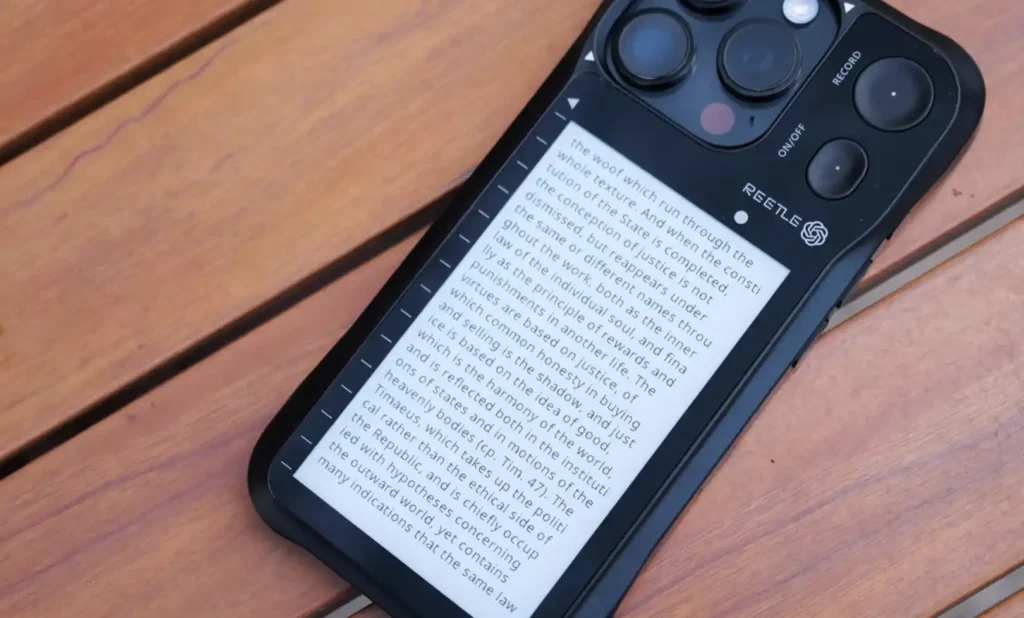 RECORD
ON/OFF
REETLE
the woof which run through the
whole texture. And when the consti
tution of the State is completed,
the conception of justice is not
dismissed, but reappears under
the same or different names throu
ghout the work, both as the inner
law of the individual soul, and fina
lly as the principle of rewards and
punishments in another life. The
virtues are based on justice, of
which common honesty in buying
and selling is the shadow, and just
ice is based on the idea of good,
which is the harmony of the world,
and is reflected both in the instituti
ons of states and in motions of the
heavenly bodies (cp. Tim. 47). The
Timaeus, which takes up the politi
cal rather than the ethical side of
the Republic, and is chiefly occup
ied with hypotheses concerning
the outward world, yet contains
many indications that the same law